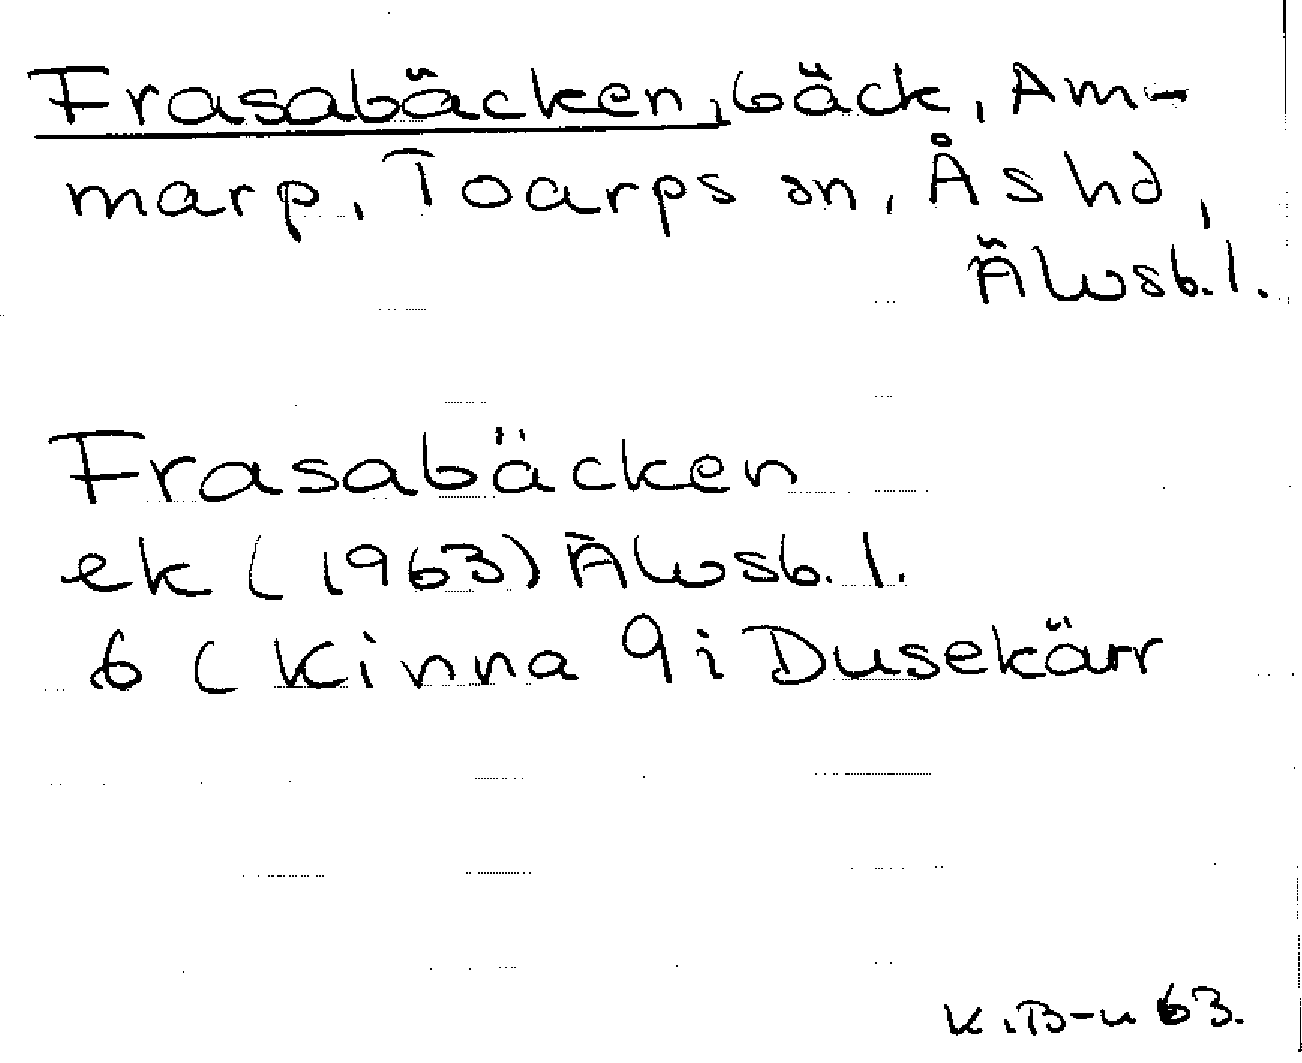 Frasabäcken, bäck, Am-
marp, Toarps sn, Ås hd,
Älvsb. l.
Frasabäcken
ek (1963) Älvsb. l.
6 (Kinna 9i Dusekärr
K.B-n 63.